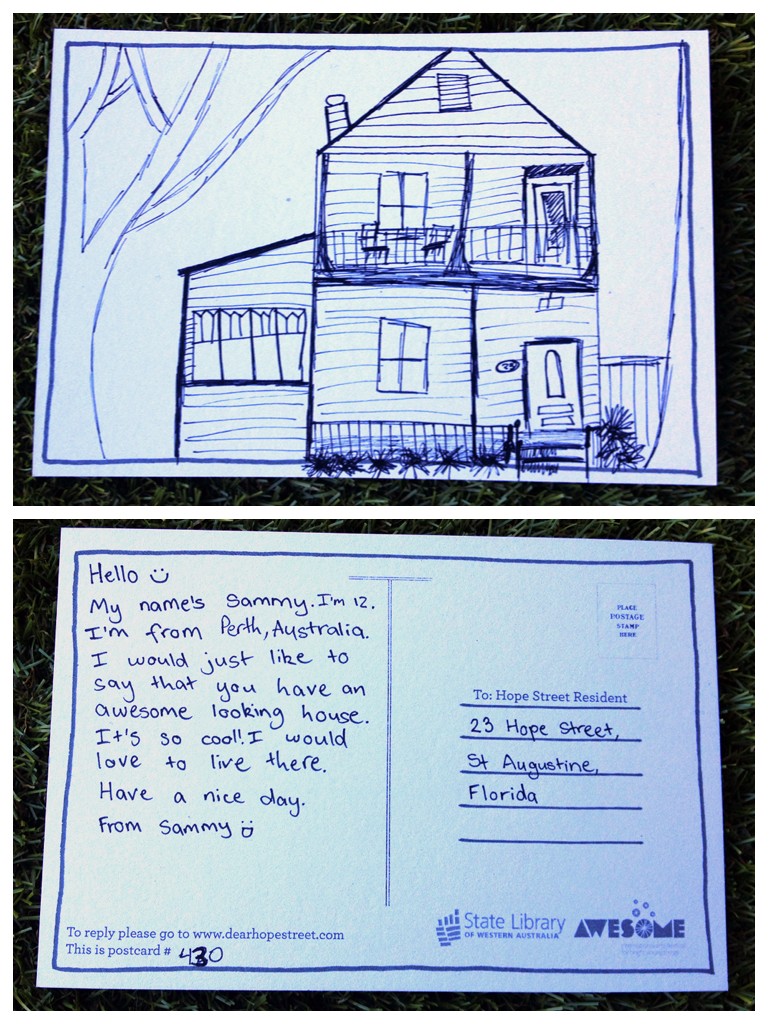 23
Hello ☺
My name's Sammy. I'm 12.
I'm from Perth, Australia.
I would just like to
say that you have an
awesome looking house.
It's so cool! I would
love to live there.
Have a nice day.
From Sammy ☺
To reply please go to www.dearhopestreet.com
This is postcard # 430
PLACE
POSTAGE
STAMP
HERE
To: Hope Street Resident
23 Hope Street,
St Augustine,
Florida
State Library
OF WESTERN AUSTRALIA
AWESOME